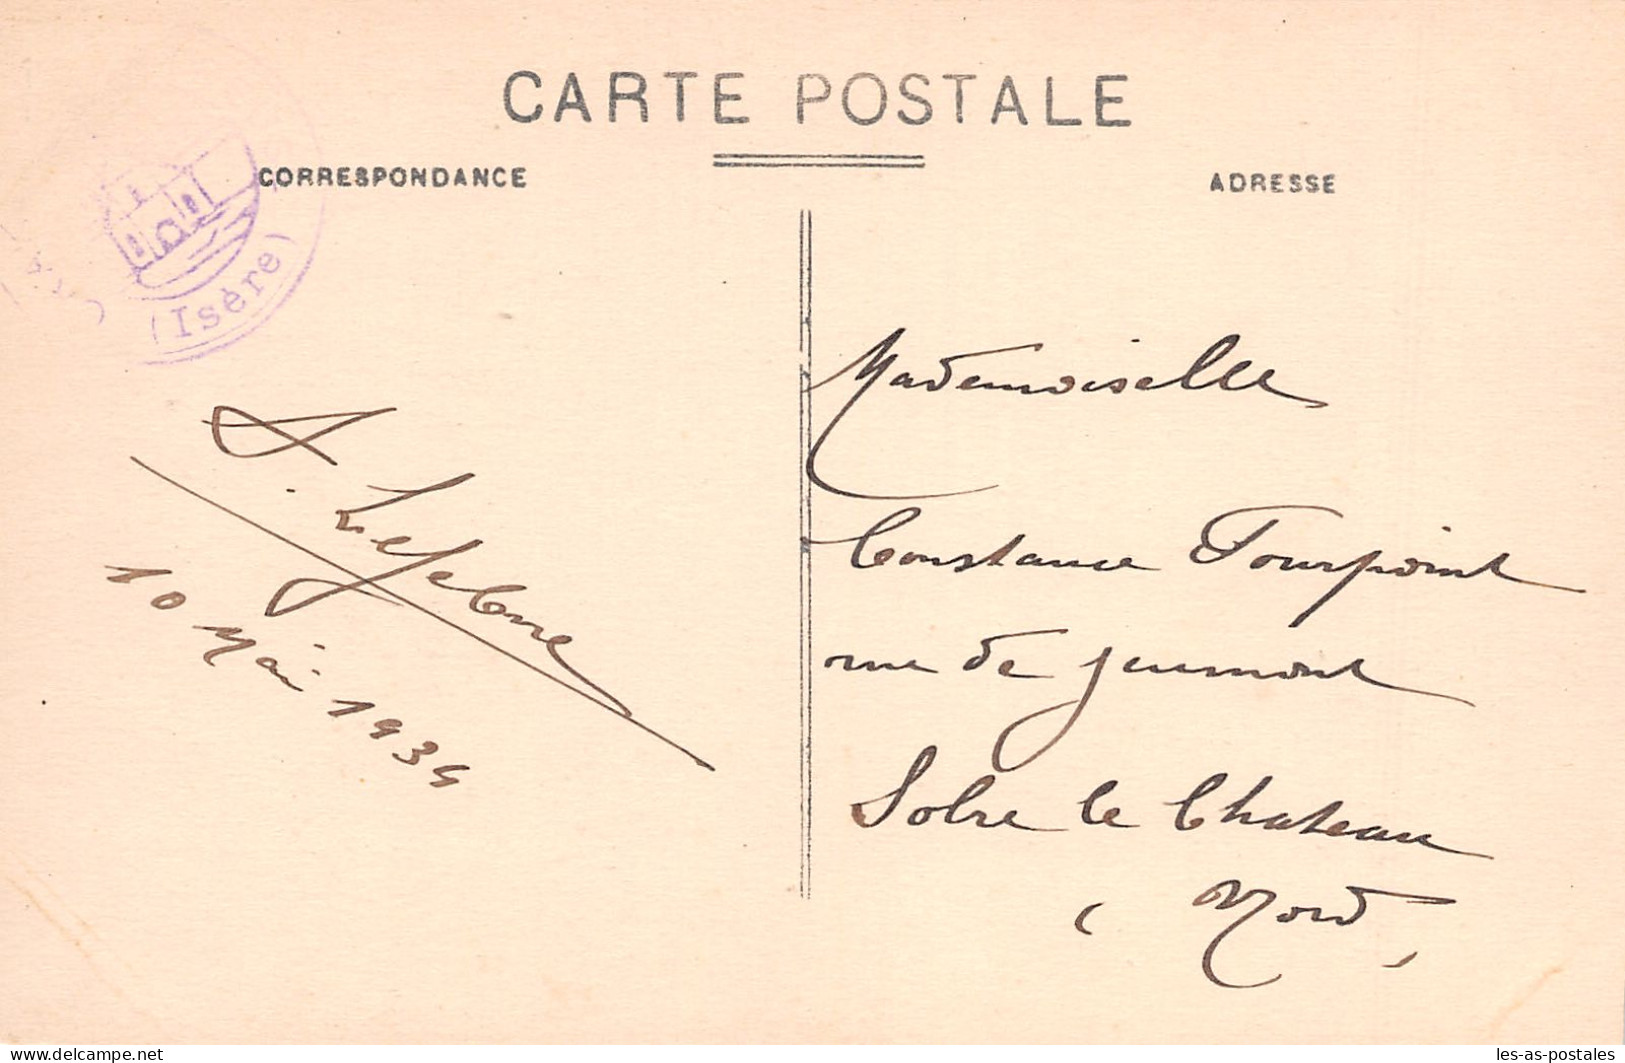 CARTE POSTALE
CORRESPONDANCE
ADRESSE
(Isère)
Mademoiselle
Constance Tourpoint
rue de Jeumont
Solre le Chateau
(Nord)
A. Lefebvre
10 Mai 1934
delcampe.net
les-as-postales